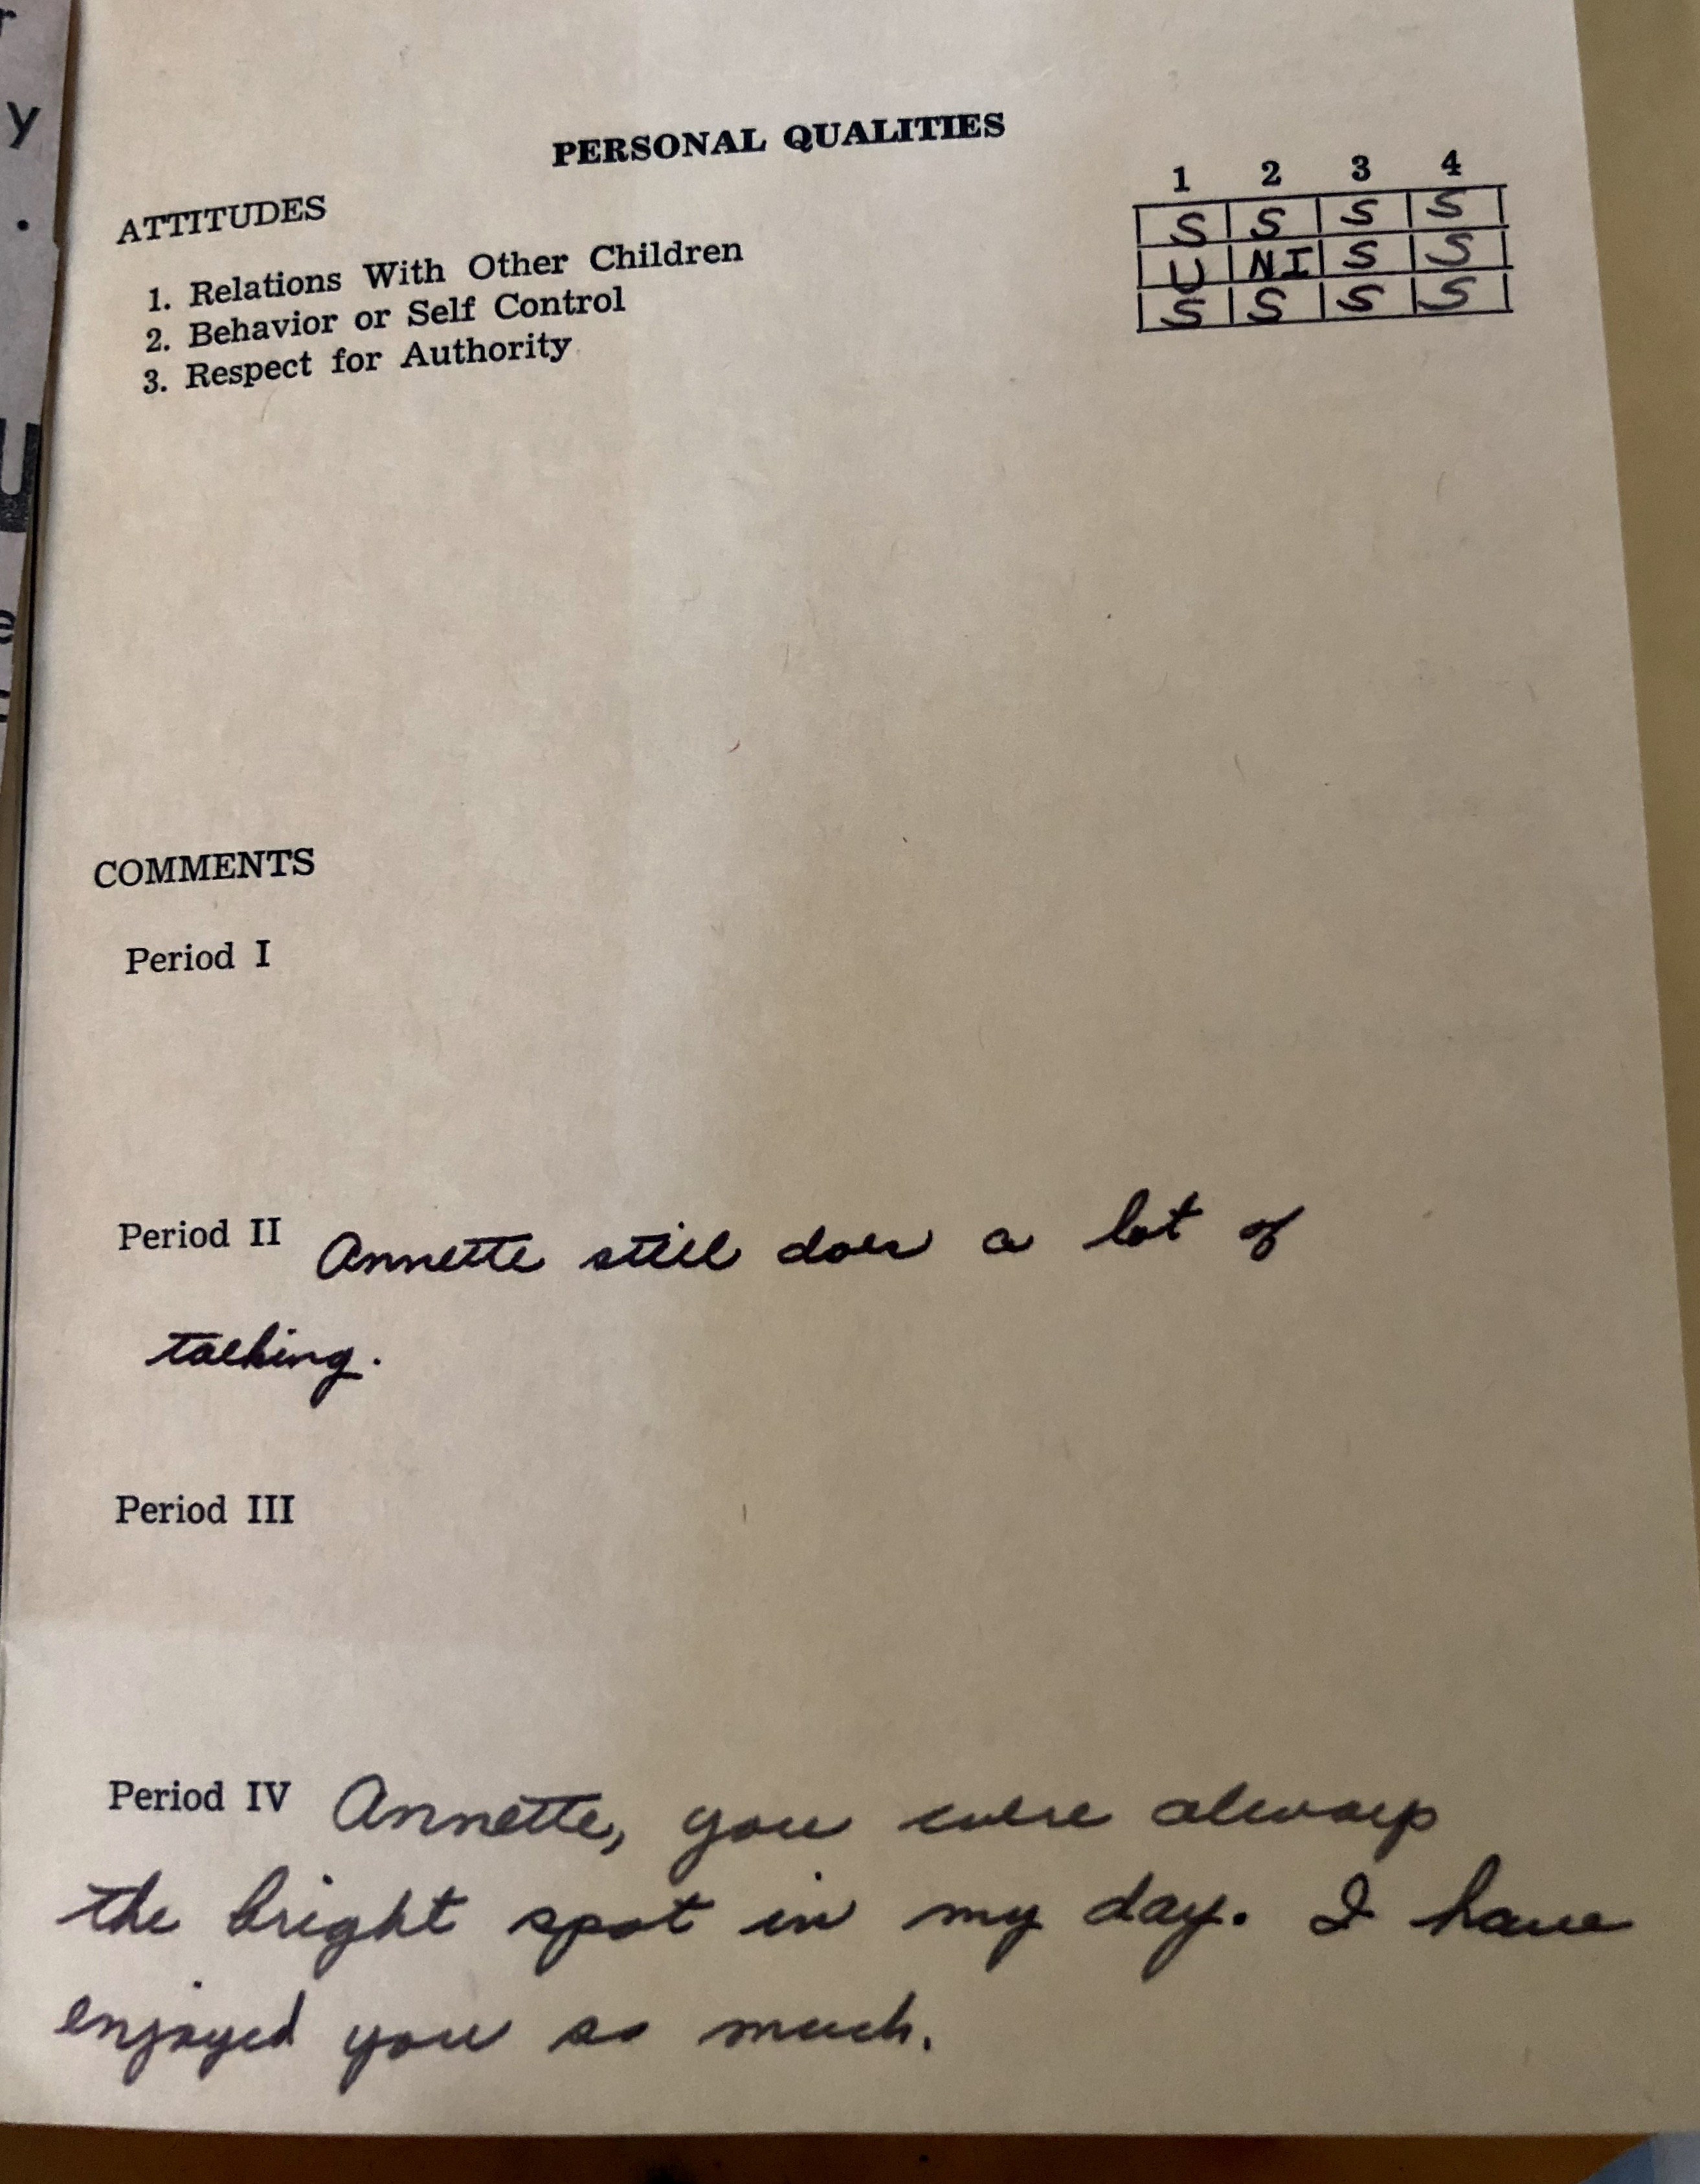 PERSONAL QUALITIES
1 2 3 4
ATTITUDES
1. Relations With Other Children S S S S
2. Behavior or Self Control U NI S S
3. Respect for Authority S S S S
COMMENTS
Period I
Period II Annette still does a lot of
talking.
Period III
Period IV Annette, you were always
the bright spot in my day. I have
enjoyed you so much.